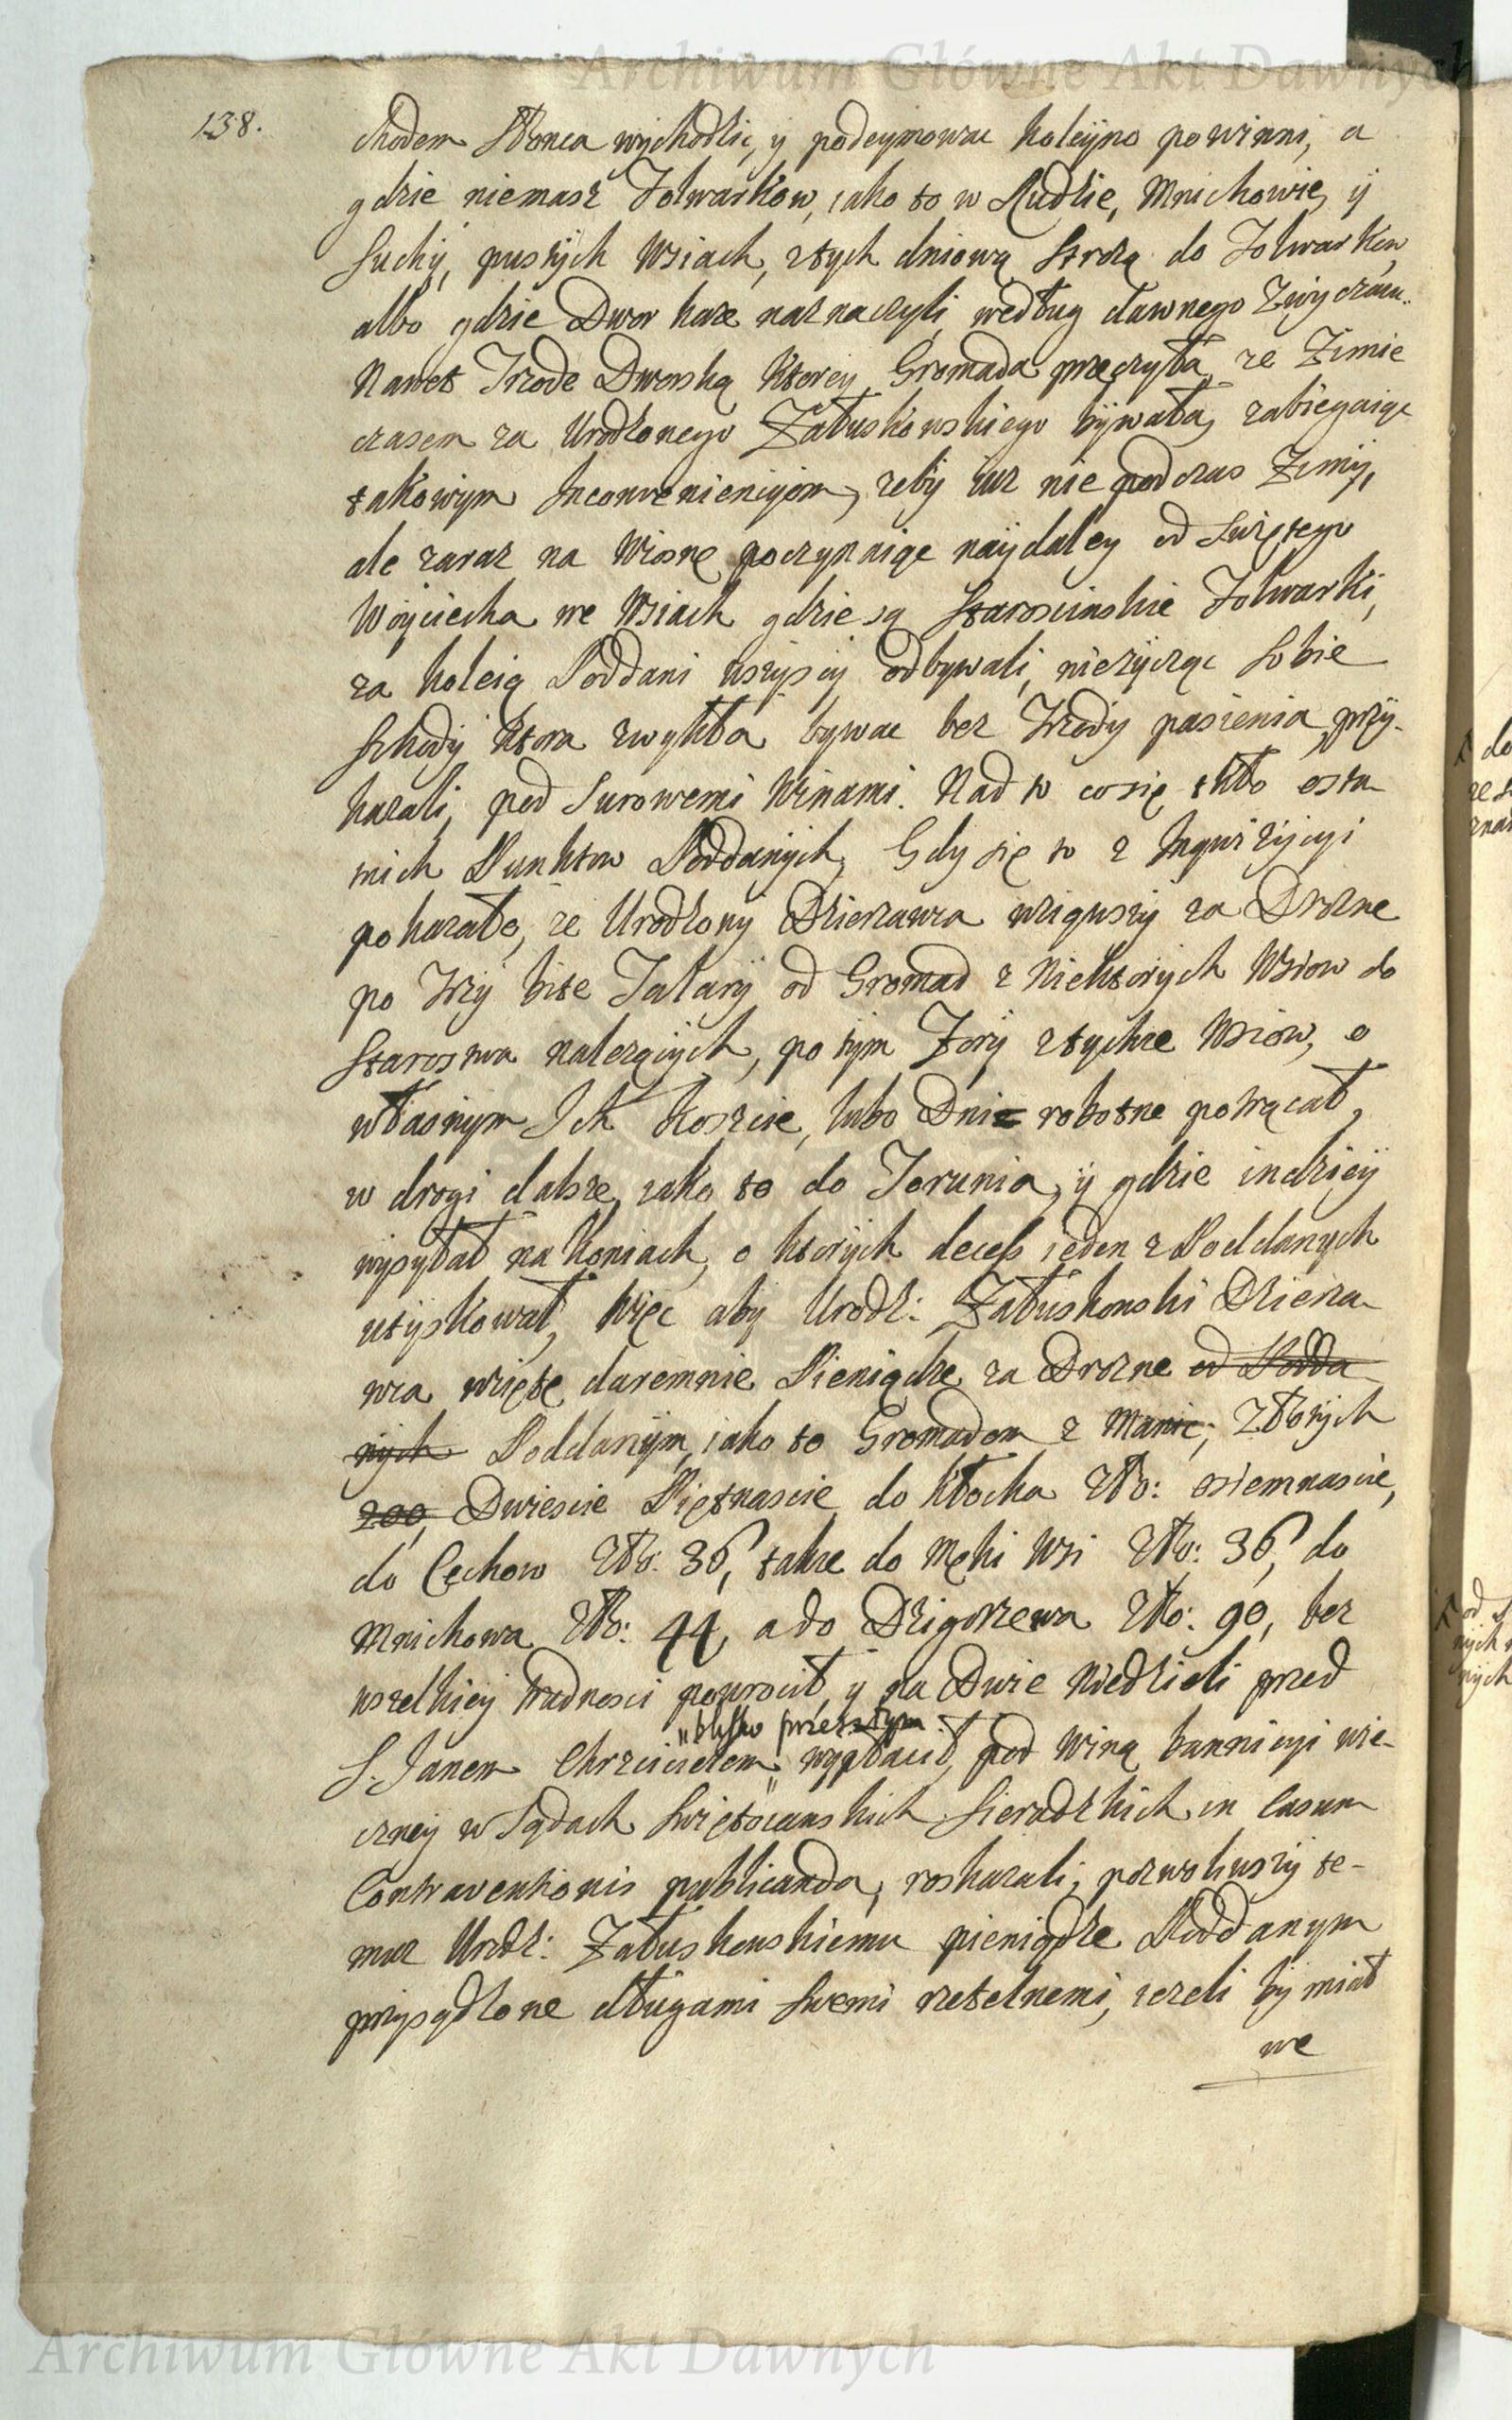 Archiwum Główne Akt Dawnych
138.
chodem Słonca wychodzic, y podeymowac koleyno powinni, a
gdzie niemasz Folwarkow, iako to w Rudzie, Mnichowie, y
Suchy, pustych Wsiach, z tych dniową Strożą do Folwarkow,
albo gdzie Dwor każe naznaczyli, według dawnego Zwyczaiu.
Nawet Trzode Dworską Ktorey Gromada przeczyła, ze Zimie
czasem za Urodzonego Załuskowskiego bywała, zabiegaiąc
takowym Inconveniencyjom, zeby iuz nie podczas Zimy,
ale zaraz na Wiosnę poczynaiąc naydaley od Swiętego
Woyciecha we Wsiach gdzie są Starościnskie Folwarki,
za koleią Poddani wszyscy odbywali, nieżycząc Sobie
Szkody Ktora zwykła bywac bez Trzody pasienia, przy-
kazali, pod Surowemi Winami. Nad to co się tkło osta
tnich Punktow Poddanych, Gdy się to z Inqwizycyi
pokazało, że Urodzony Dzierzawca wziąwszy za Drozne
po Trzy bite Talary od Gromad z Niektorych Wsiow do
Starostwa nalezących, po tym Fory z tychze Wsiow, o
własnym Ich Koszcie, lubo Dnie robotne potrącał,
w drogi dalsze, iako to do Torunia, y gdzie indziey
wysyłał na Koniach, o ktorych decess ieden z Poddanych
utyskował, Więc aby Urodz: Załuskowski Dzierza
wca wzięte daremnie Pieniądze za Drozne od Podda
nych Poddanym, iako to Gromadom z Manic; Złotych
200, Dwiescie Piętnascie, do Kłocka Zło: osiemnascie,
do Cechow Zło: 36, także do Męki Wsi Zło: 36, do
Mnichowa Zło: 44, a do Dzigorzewa Zło: 90, bez
wszelkiey trudnosci powrocił, y na Dwie Niedzieli przed
"blisko przeszłym
S. Janem Chrzcicielem" wypłacił, pod Winą bannicyi wie-
czney w Sądach Swiętocanskich Sieradzkich in Casum
Contraventionis publicanda, roskazali, pozwoliwszy te-
muz Urodz: Załuskowskiemu pieniądze Poddanym
przysądzone długami Swemi rzetelnemi, iezeli by miał
we
do
od
nych
Archiwum Główne Akt Dawnych